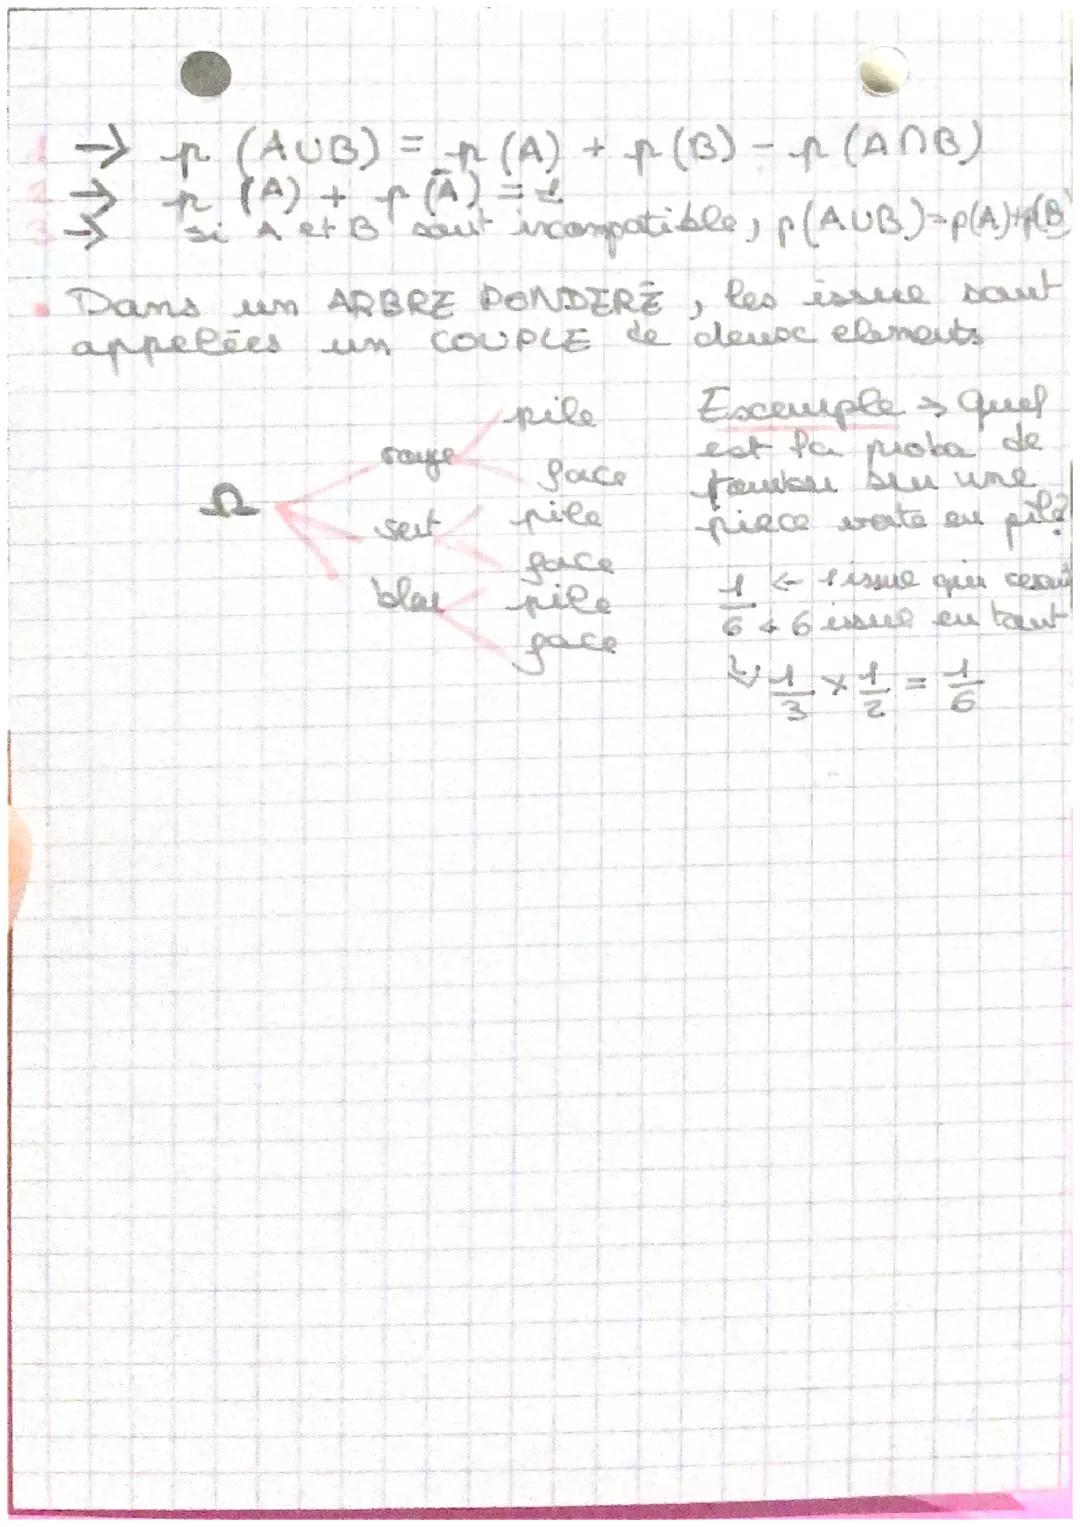 1 → p (A∪B) = p (A) + p (B) - p (A∩B)
2 → p (A) + p (Ā) = 1
3 → si A et B sont incompatible, p(A∪B)=p(A)+p(B)
Dans un ARBRE PONDERÉ, les issue sont
appelées un COUPLE de deux elements
Exemple → Quel
est la proba de
tomber sur une
piece verte en pile?
Ω
rouge
pile
face
vert
pile
face
bleu
pile
face
1/6 ← 1 issue qui
6 issue en tout
1/3 × 1/2 = 1/6